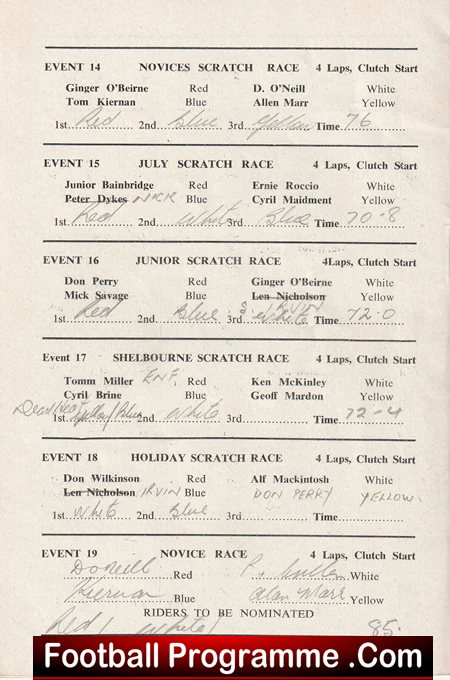 EVENT 14 NOVICES SCRATCH RACE 4 Laps, Clutch Start
Ginger O'Beirne Red D. O'Neill White
Tom Kiernan Blue Allen Marr Yellow
1st Red 2nd Blue 3rd Yellow Time 76
EVENT 15 JULY SCRATCH RACE 4 Laps, Clutch Start
Junior Bainbridge Red Ernie Roccio White
Peter Dykes NICK Blue Cyril Maidment Yellow
1st Red 2nd White 3rd Blue Time 70-8
EVENT 16 JUNIOR SCRATCH RACE 4Laps, Clutch Start
Don Perry Red Ginger O'Beirne White
Mick Savage Blue Len Nicholson IRVIN Yellow
1st Red 2nd Blue 3rd White Time 72.0
Event 17 SHELBOURNE SCRATCH RACE 4 Laps, Clutch Start
Tomm Miller E.N.F. Red Ken McKinley White
Cyril Brine Blue Geoff Mardon Yellow
Dead Heat 1st Yellow/Blue 2nd White 3rd Time 72-4
EVENT 18 HOLIDAY SCRATCH RACE 4 Laps, Clutch Start
Don Wilkinson Red Alf Mackintosh White
Len Nicholson IRVIN Blue DON PERRY YELLOW.
1st White 2nd Blue 3rd Time
EVENT 19 NOVICE RACE 4 Laps, Clutch Start
D O'Neill Red White
Kiernan Blue Alan Marr Yellow
RIDERS TO BE NOMINATED
Red White 85.
Football Programme .Com